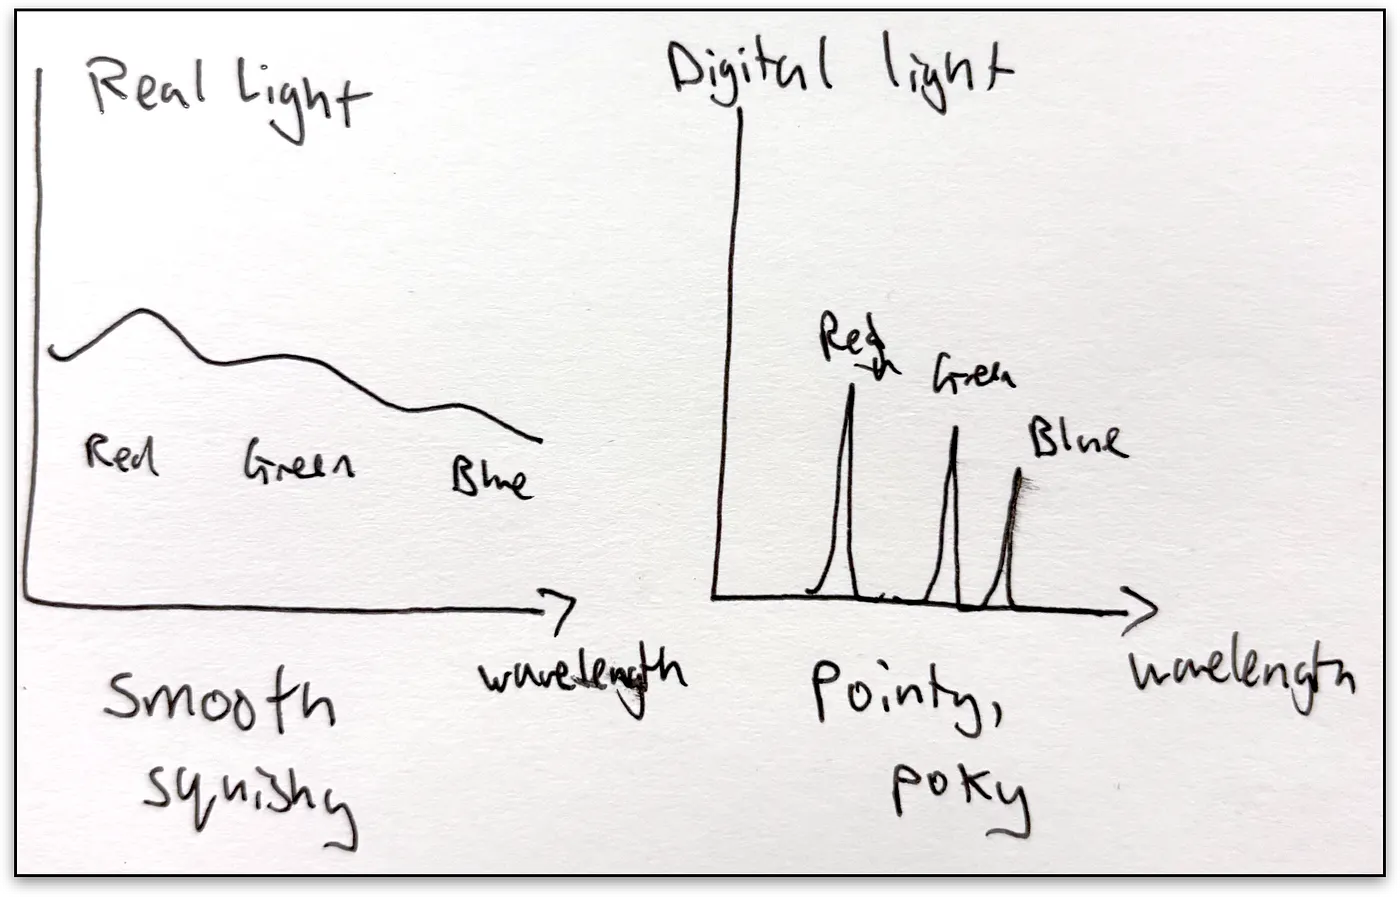 Real Light
Red Green Blue
wavelength
Smooth
squishy
Digital light
Red
Green
Blue
wavelength
Pointy,
poky